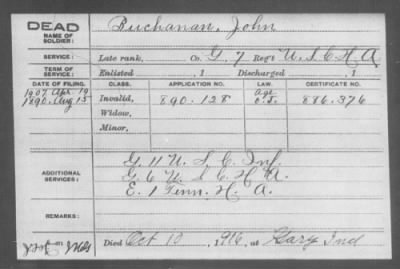 DEAD
NAME OF SOLDIER:
Buchanan, John
SERVICE:
Late rank, Co. G. 7 Regt U. S. C. H. A.
TERM OF SERVICE:
Enlisted , 1 Discharged , 1
DATE OF FILING. CLASS. APPLICATION NO. LAW. CERTIFICATE NO.
1907 Apr. 19 Age
1890. Aug 15 Invalid, 890.128 886.376
Widow,
Minor,
ADDITIONAL SERVICES:
G. 11 U. S. C. Inf.
G. 6 U. S. C. H. A.
E. 1 Tenn. H. A.
REMARKS:
Died Oct 10, 1916, at Gary Ind